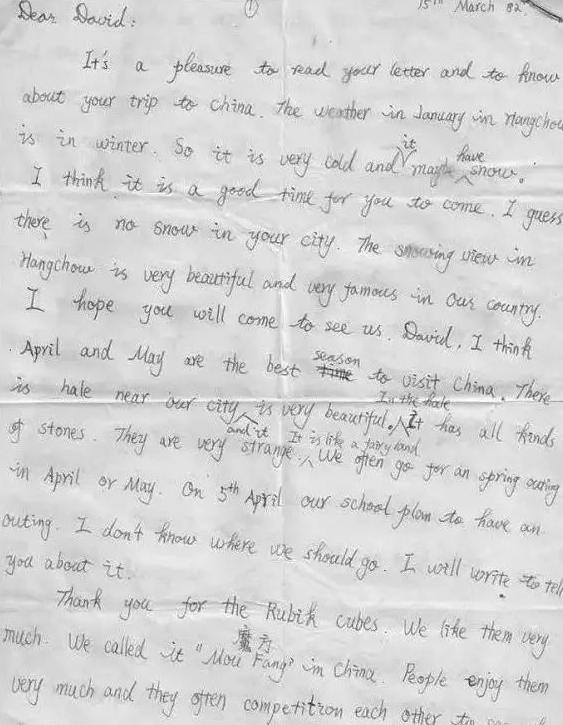 ①
15th March 82.
Dear David:
It's a pleasure to read your letter and to know
about your trip to China. The weather in January in Hangchou
is in winter. So it is very cold and it may have snow.
I think it is a good time for you to come. I guess
there is no snow in your city. The snowing view in
Hangchow is very beautiful and very famous in our country.
I hope you will come to see us. David, I think
April and May are the best season to visit China. There
is hale near our city and it is very beautiful. In the hale It has all kinds
of stones. They are very strange. It is like a fairyland We often go for an spring outing
in April or May. On 5th April our school plan to have an
outing. I don't know where we should go. I will write to tell
you about it.
Thank you for the Rubik cubes. We like them very
much. We called it "Mou Fang" 魔方 in China. People enjoy them
very much and they often competition each other to